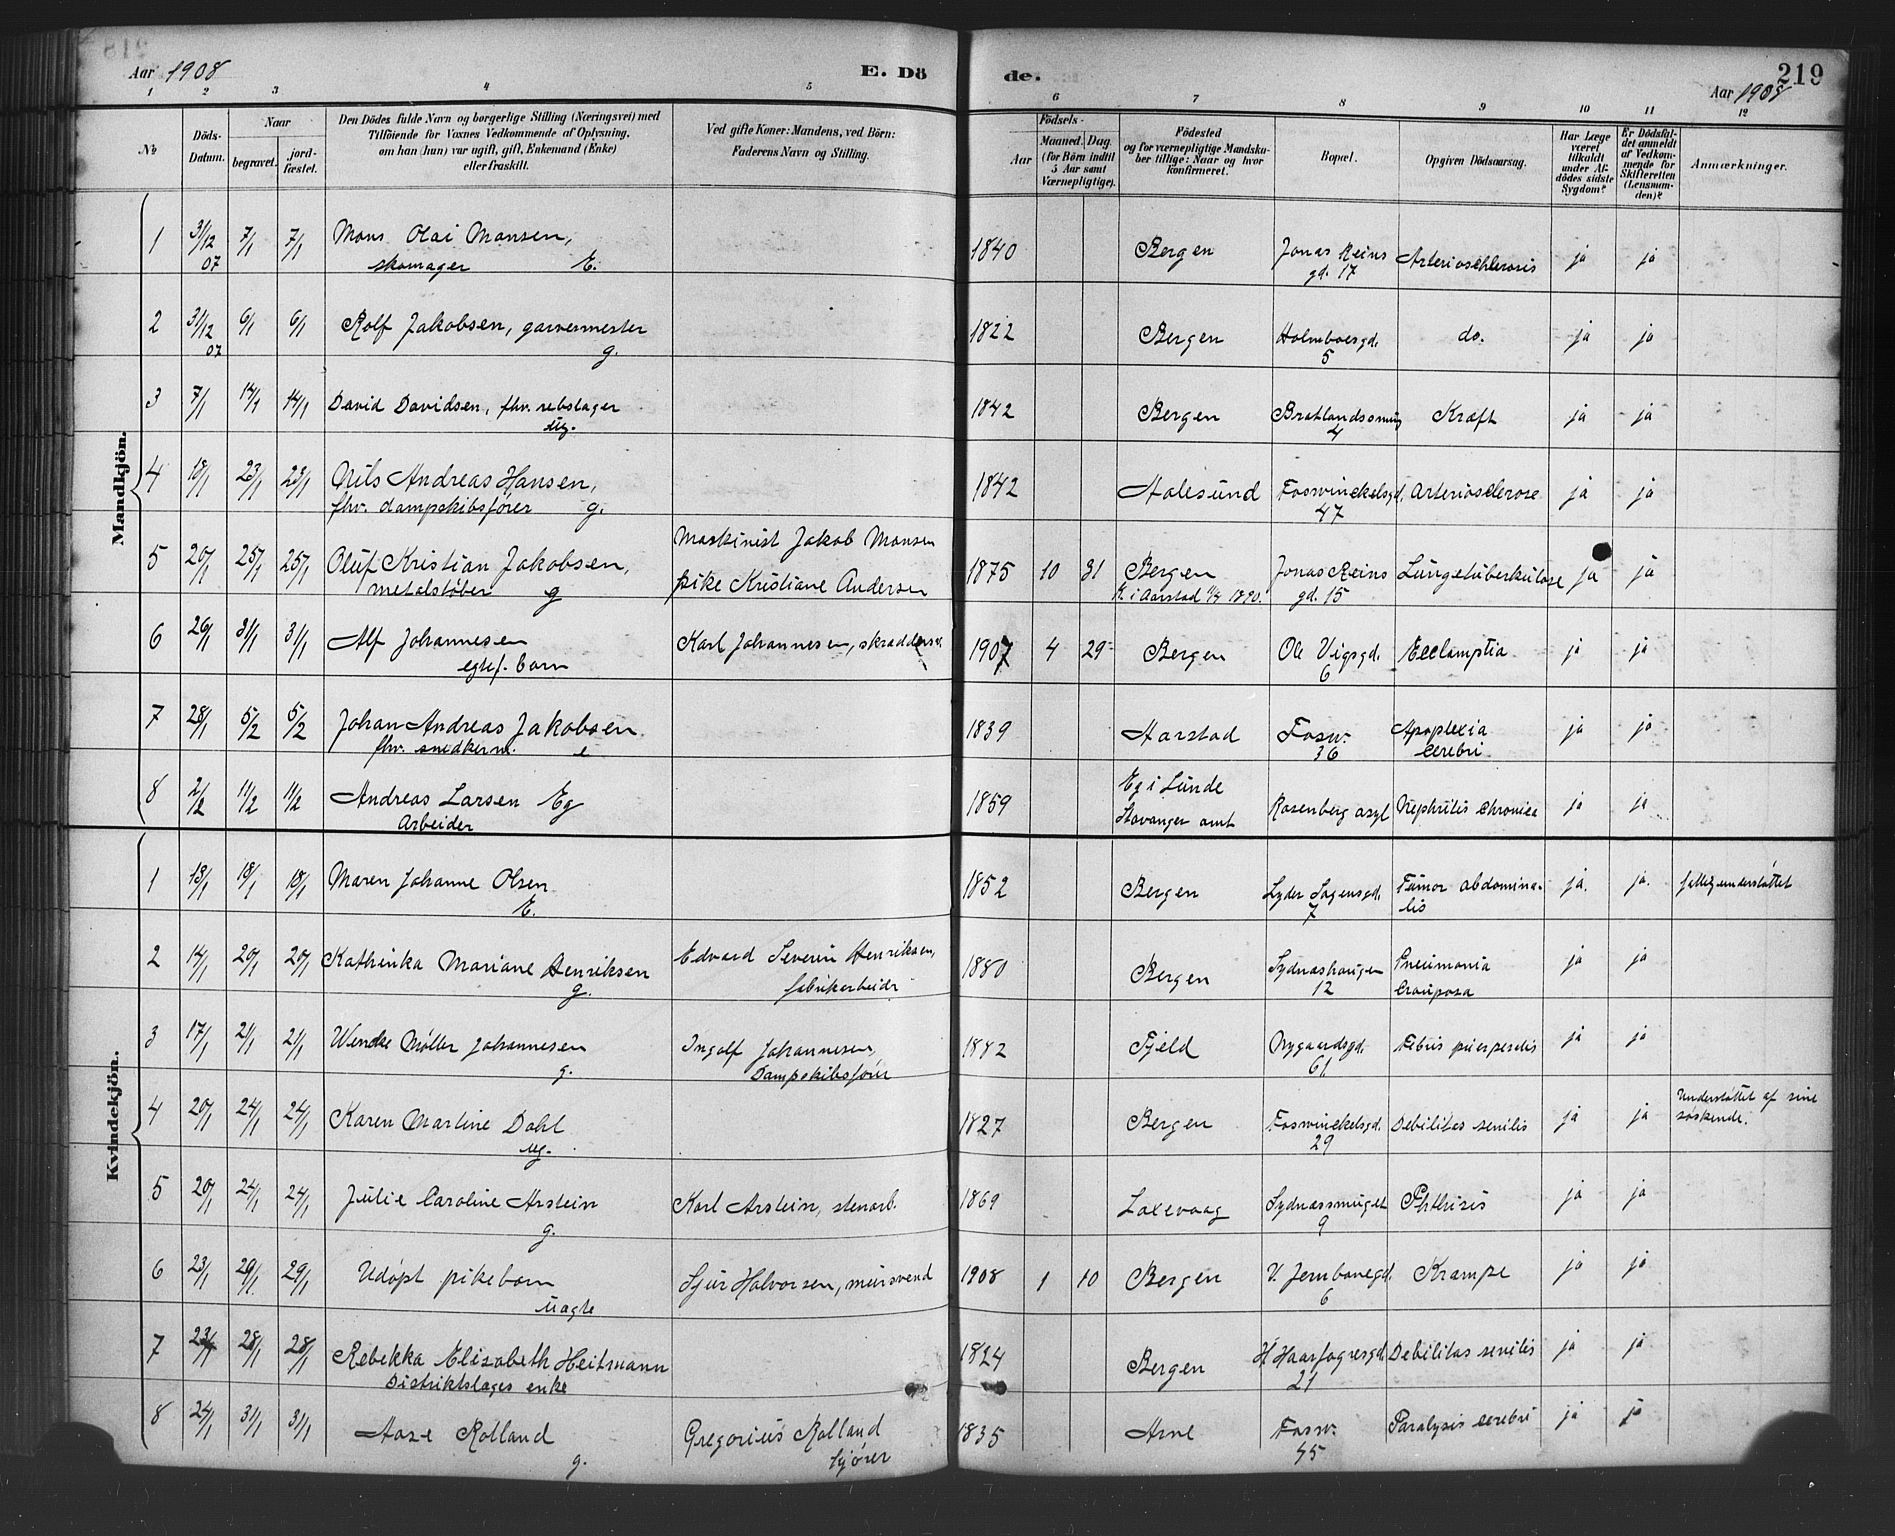 Aar 1908
E. Dö
de.
219
Aar 1908
1 2 3 4 5 6 7 8 9 10 11 12
No
Döds-Datum.
Naar
begravet.
jord-fæstet.
Den Dödes fulde Navn og borgerlige Stilling (Næringsvei) med
Tilföiende for Voxnes Vedkommende af Oplysning,
om han (hun) var ugift, gift, Enkemand (Enke)
eller fraskilt.
Ved gifte Koner: Mandens, ved Börn:
Faderens Navn og Stilling.
Födsels-
Aar
Maaned. Dag
(for Börn indtil
5 Aar samt
Værnepligtige).
Födested
og for værnepligtige Mandsku-
ber tillige: Naar og hvor
konfirmeret.
Bopæl.
Opgiven Dödsaarsag.
Har Læge
været
tilkaldt
under Af-
dödes sidste
Sygdom?
Er Dödsfal-
det anmeldt
af Vedkom-
mende for
Skifteretten
(Lensman-
den)?
Anmærkninger.
Mandkjön.
1 31/12 07 7/1 7/1 Mons Olai Monsen, 1840 Bergen Jonas Reins Arteriosclerosis ja ja
skomager E. gd. 17
2 31/12 07 6/1 6/1 Rolf Jakobsen, garvermester 1822 Bergen Holmboesgd. do. ja ja
g. 5
3 7/1 14/1 14/1 David Davidsen, fhv. rebslager 1842 Bergen Bratlandssmug Kræft ja ja
ug. 4
4 18/1 23/1 23/1 Nils Andreas Hansen, 1842 Aalesund Fosswinckelsgd. Arteriosclerose ja ja
fhv. dampskibsfører g. 47
5 20/1 25/1 25/1 Oluf Kristian Jakobsen, Maskinist Jakob Monsen 1875 10 31 Bergen Jonas Reins Lungetuberkulose ja ja
metalstøber g pike Kristiane Andersen K. i Aarstad 1890. gd. 15
6 26/1 31/1 31/1 Alf Johannesen Karl Johannesen, 1907 4 29 Bergen Ole Vigsgd. Ecclamptia ja ja
egtef. barn 6
7 28/1 5/2 5/2 Johan Andreas Jakobsen 1839 Aarstad Fosw. Apoplexia ja ja
fhv. snedkerm. e 36 cerebri
8 2/2 11/2 11/2 Andreas Larsen Eg 1859 Eg i Lunde Rosenberg asyl Nephritis chronica ja ja
Arbeider Stavanger amt
Kvindekjön.
1 13/1 18/1 18/1 Maren Johanne Olsen 1852 Bergen Lyder Sagensgd. Tumor abdomina- ja. ja. fattigunderstøttet
E. 7 lis
2 14/1 20/1 20/1 Kathinka Mariane Henriksen Edvard Severin Henriksen, 1880 Bergen Sydnæshaugen Pneumonia ja ja
g. fabrikarbeidr 12 Crouposa
3 17/1 21/1 21/1 Wencke Møller Johannesen Ingolf Johannesen, 1882 Fjeld Nygaardsgd. Febris puerperalis ja ja
g. Dampskibsfører 61
4 20/1 24/1 24/1 Karen Martine Dahl 1827 Bergen Foswinckelsgd. Debilitas senilis ja ja Understøttet af sine
ug. 29 søskende.
5 20/1 24/1 24/1 Julie Caroline Arstein Karl Arstein, stenarb. 1869 Laxevaag Sydnæssmuget Phthisis ja ja
g. 9
6 23/1 29/1 29/1 Udøpt pikebarn Sjur Halvorsen, mursvend 1908 1 10 Bergen V. Jernbanegd. Krampe ja ja
uægte 6
7 23/1 28/1 28/1 Rebekka Elisabeth Heitmann 1824 Bergen H Haarfagresgd. Debilitas senilis ja ja
Distriktslæges enke 21
8 24/1 31/1 31/1 Aase Rolland Gregorius Rolland 1835 Arne Fosw. Paralysis cerebri ja ja
g. 45